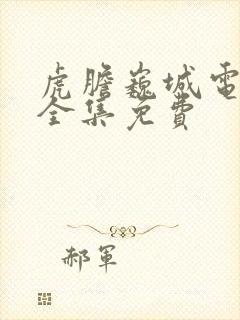 虎膽巍城電
全集免費
郝軍